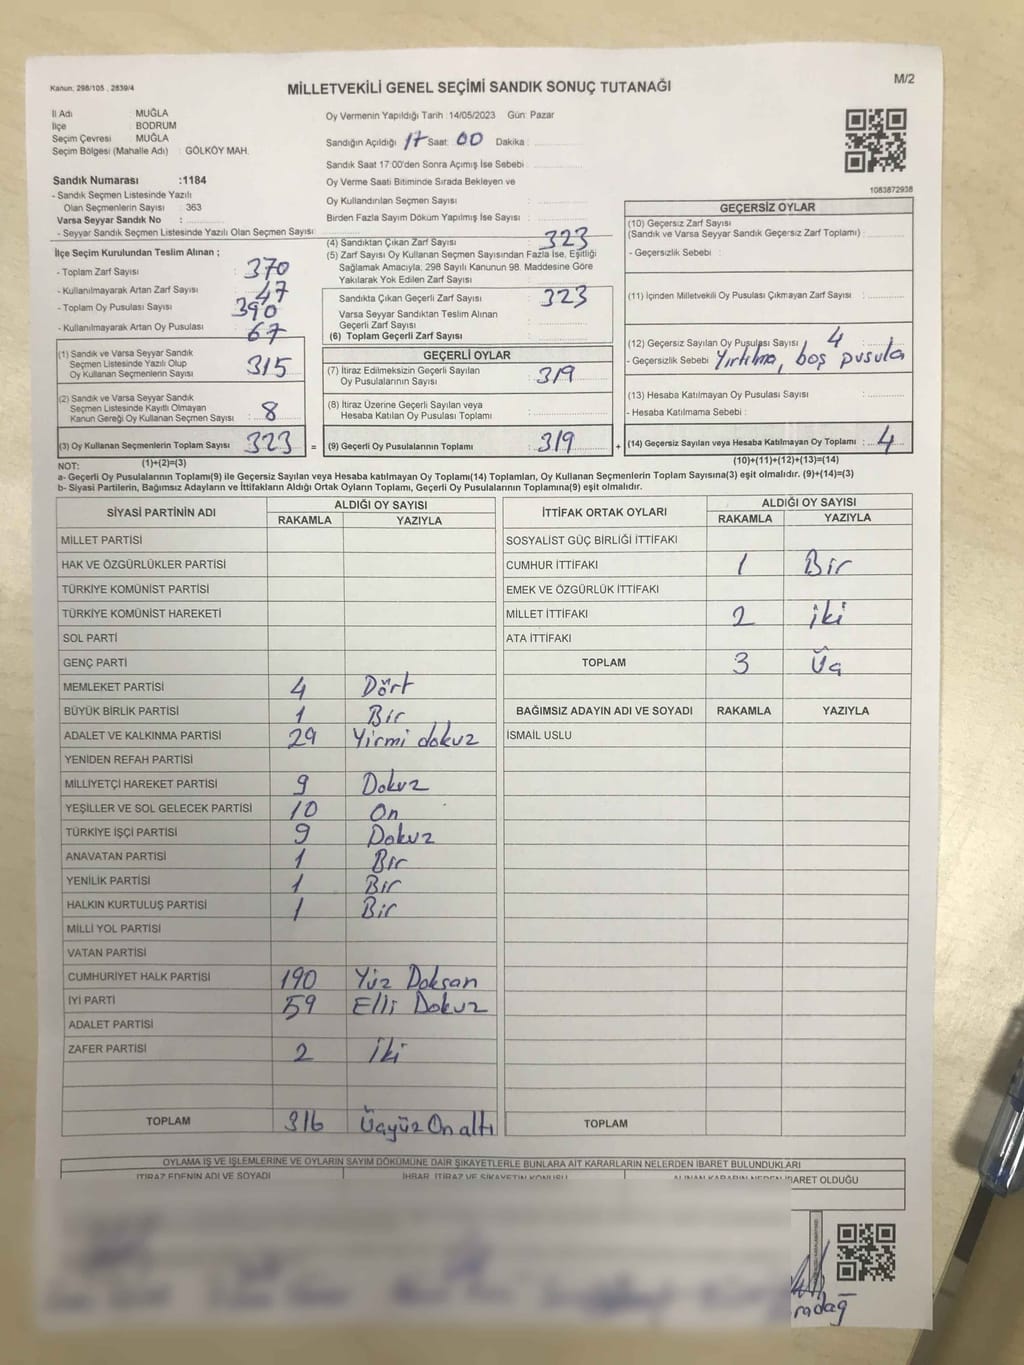 Kanun, 298/105 , 2839/4
M/2
MİLLETVEKİLİ GENEL SEÇİMİ SANDIK SONUÇ TUTANAĞI
İl Adı MUĞLA
İlçe BODRUM
Seçim Çevresi MUĞLA
Seçim Bölgesi (Mahalle Adı) : GÖLKÖY MAH.
Sandık Numarası :1184
- Sandık Seçmen Listesinde Yazılı
Olan Seçmenlerin Sayısı : 363
Varsa Seyyar Sandık No :
- Seyyar Sandık Seçmen Listesinde Yazılı Olan Seçmen Sayısı:
Oy Vermenin Yapıldığı Tarih :14/05/2023 Gün: Pazar
Sandığın Açıldığı 17 Saat: 00 Dakika :
Sandık Saat 17:00'den Sonra Açımış İse Sebebi
Oy Verme Saati Bitiminde Sırada Bekleyen ve
Oy Kullandırılan Seçmen Sayısı :
Birden Fazla Sayım Döküm Yapılmış İse Sayısı :
1083872938
İlçe Seçim Kurulundan Teslim Alınan ;
- Toplam Zarf Sayısı : 370
- Kullanılmayarak Artan Zarf Sayısı : 47
- Toplam Oy Pusulası Sayısı : 390
- Kullanılmayarak Artan Oy Pusulası : 67
(1) Sandık ve Varsa Seyyar Sandık
Seçmen Listesinde Yazılı Olup
Oy Kullanan Seçmenlerin Sayısı : 315
(2) Sandık ve Varsa Seyyar Sandık
Seçmen Listesinde Kayıtlı Olmayan
Kanun Gereği Oy Kullanan Seçmen Sayısı : 8
(3) Oy Kullanan Seçmenlerin Toplam Sayısı : 323 =
(4) Sandıktan Çıkan Zarf Sayısı : 323
(5) Zarf Sayısı Oy Kullanan Seçmen Sayısından Fazla İse, Eşitliği
Sağlamak Amacıyla; 298 Sayılı Kanunun 98. Maddesine Göre
Yakılarak Yok Edilen Zarf Sayısı :
Sandıkta Çıkan Geçerli Zarf Sayısı : 323
Varsa Seyyar Sandıktan Teslim Alınan
Geçerli Zarf Sayısı :
(6) Toplam Geçerli Zarf Sayısı :
GEÇERLİ OYLAR
(7) İtiraz Edilmeksizin Geçerli Sayılan
Oy Pusulalarının Sayısı : 319
(8) İtiraz Üzerine Geçerli Sayılan veya
Hesaba Katılan Oy Pusulası Toplamı :
(9) Geçerli Oy Pusulalarının Toplamı : 319 +
GEÇERSİZ OYLAR
(10) Geçersiz Zarf Sayısı
(Sandık ve Varsa Seyyar Sandık Geçersiz Zarf Toplamı) :
- Geçersizlik Sebebi :
(11) İçinden Milletvekili Oy Pusulası Çıkmayan Zarf Sayısı :
(12) Geçersiz Sayılan Oy Pusulası Sayısı : 4
- Geçersizlik Sebebi : Yırtılma, boş pusula
(13) Hesaba Katılmayan Oy Pusulası Sayısı :
- Hesaba Katılmama Sebebi :
(14) Geçersiz Sayılan veya Hesaba Katılmayan Oy Toplamı : 4
NOT: (1)+(2)=(3) (10)+(11)+(12)+(13)=(14)
a- Geçerli Oy Pusulalarının Toplamı(9) ile Geçersiz Sayılan veya Hesaba katılmayan Oy Toplamı(14) Toplamları, Oy Kullanan Seçmenlerin Toplam Sayısına(3) eşit olmalıdır. (9)+(14)=(3)
b- Siyasi Partilerin, Bağımsız Adayların ve İttifakların Aldığı Ortak Oyların Toplamı, Geçerli Oy Pusulalarının Toplamına(9) eşit olmalıdır.
SİYASİ PARTİNİN ADI ALDIĞI OY SAYISI
RAKAMLA YAZIYLA
MİLLET PARTİSİ
HAK VE ÖZGÜRLÜKLER PARTİSİ
TÜRKİYE KOMÜNİST PARTİSİ
TÜRKİYE KOMÜNİST HAREKETİ
SOL PARTİ
GENÇ PARTİ
MEMLEKET PARTİSİ 4 Dört
BÜYÜK BİRLİK PARTİSİ 1 Bir
ADALET VE KALKINMA PARTİSİ 29 Yirmi dokuz
YENİDEN REFAH PARTİSİ
MİLLİYETÇİ HAREKET PARTİSİ 9 Dokuz
YEŞİLLER VE SOL GELECEK PARTİSİ 10 On
TÜRKİYE İŞÇİ PARTİSİ 9 Dokuz
ANAVATAN PARTİSİ 1 Bir
YENİLİK PARTİSİ 1 Bir
HALKIN KURTULUŞ PARTİSİ 1 Bir
MİLLİ YOL PARTİSİ
VATAN PARTİSİ
CUMHURİYET HALK PARTİSİ 190 Yüz Doksan
İYİ PARTİ 59 Elli Dokuz
ADALET PARTİSİ
ZAFER PARTİSİ 2 İki
TOPLAM 316 Üçyüz On altı
İTTİFAK ORTAK OYLARI ALDIĞI OY SAYISI
RAKAMLA YAZIYLA
SOSYALİST GÜÇ BİRLİĞİ İTTİFAKI
CUMHUR İTTİFAKI 1 Bir
EMEK VE ÖZGÜRLÜK İTTİFAKI
MİLLET İTTİFAKI 2 iki
ATA İTTİFAKI
TOPLAM 3 Üç
BAĞIMSIZ ADAYIN ADI VE SOYADI RAKAMLA YAZIYLA
İSMAİL USLU
TOPLAM
OYLAMA İŞ VE İŞLEMLERİNE VE OYLARIN SAYIM DÖKÜMÜNE DAİR ŞİKAYETLERLE BUNLARA AİT KARARLARIN NELERDEN İBARET BULUNDUKLARI
İTİRAZ EDENİN ADI VE SOYADI İHBAR, İTİRAZ VE ŞİKAYETİN KONUSU ALINAN KARARIN NEDEN İBARET OLDUĞU
radağ